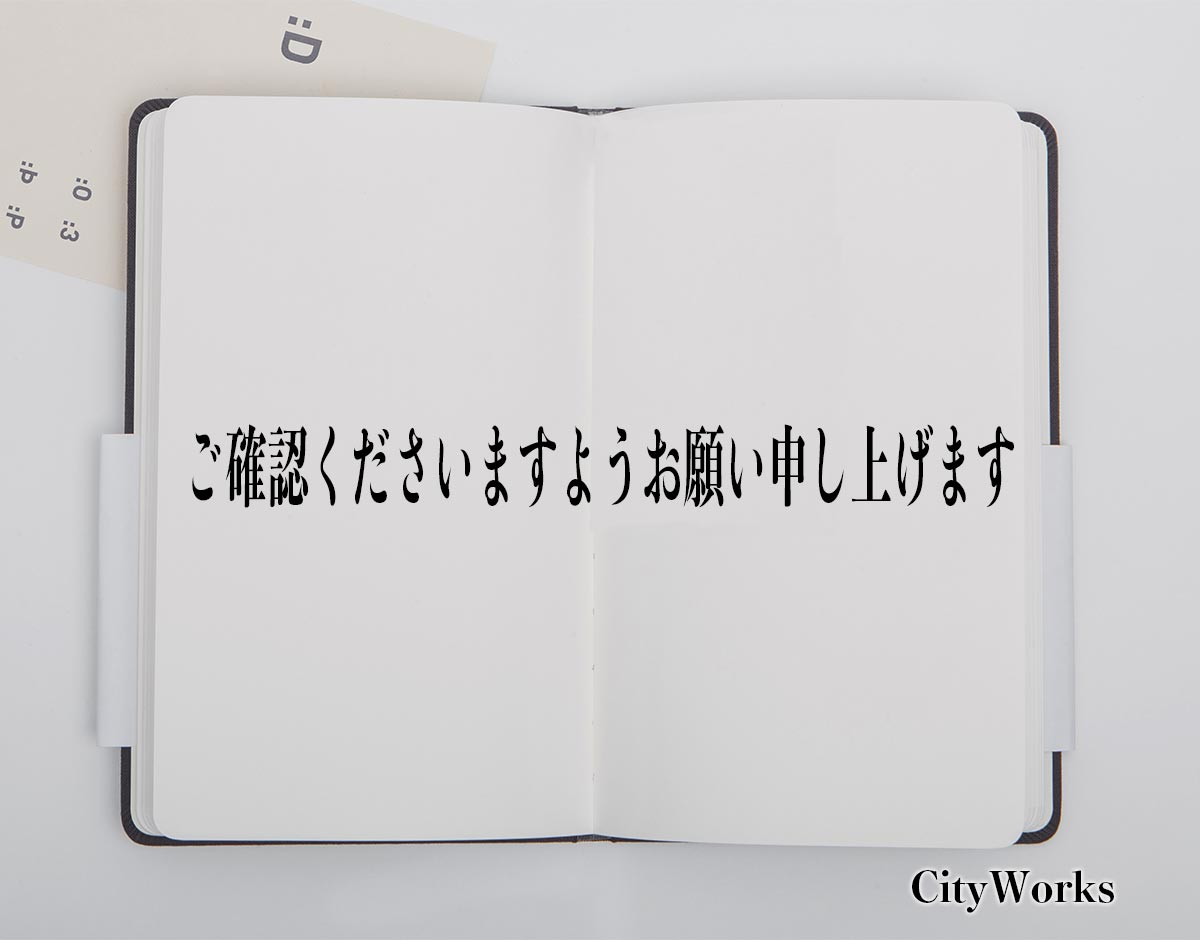 :D
:P :O
:P :3
ご確認くださいますようお願い申し上げます
CityWorks